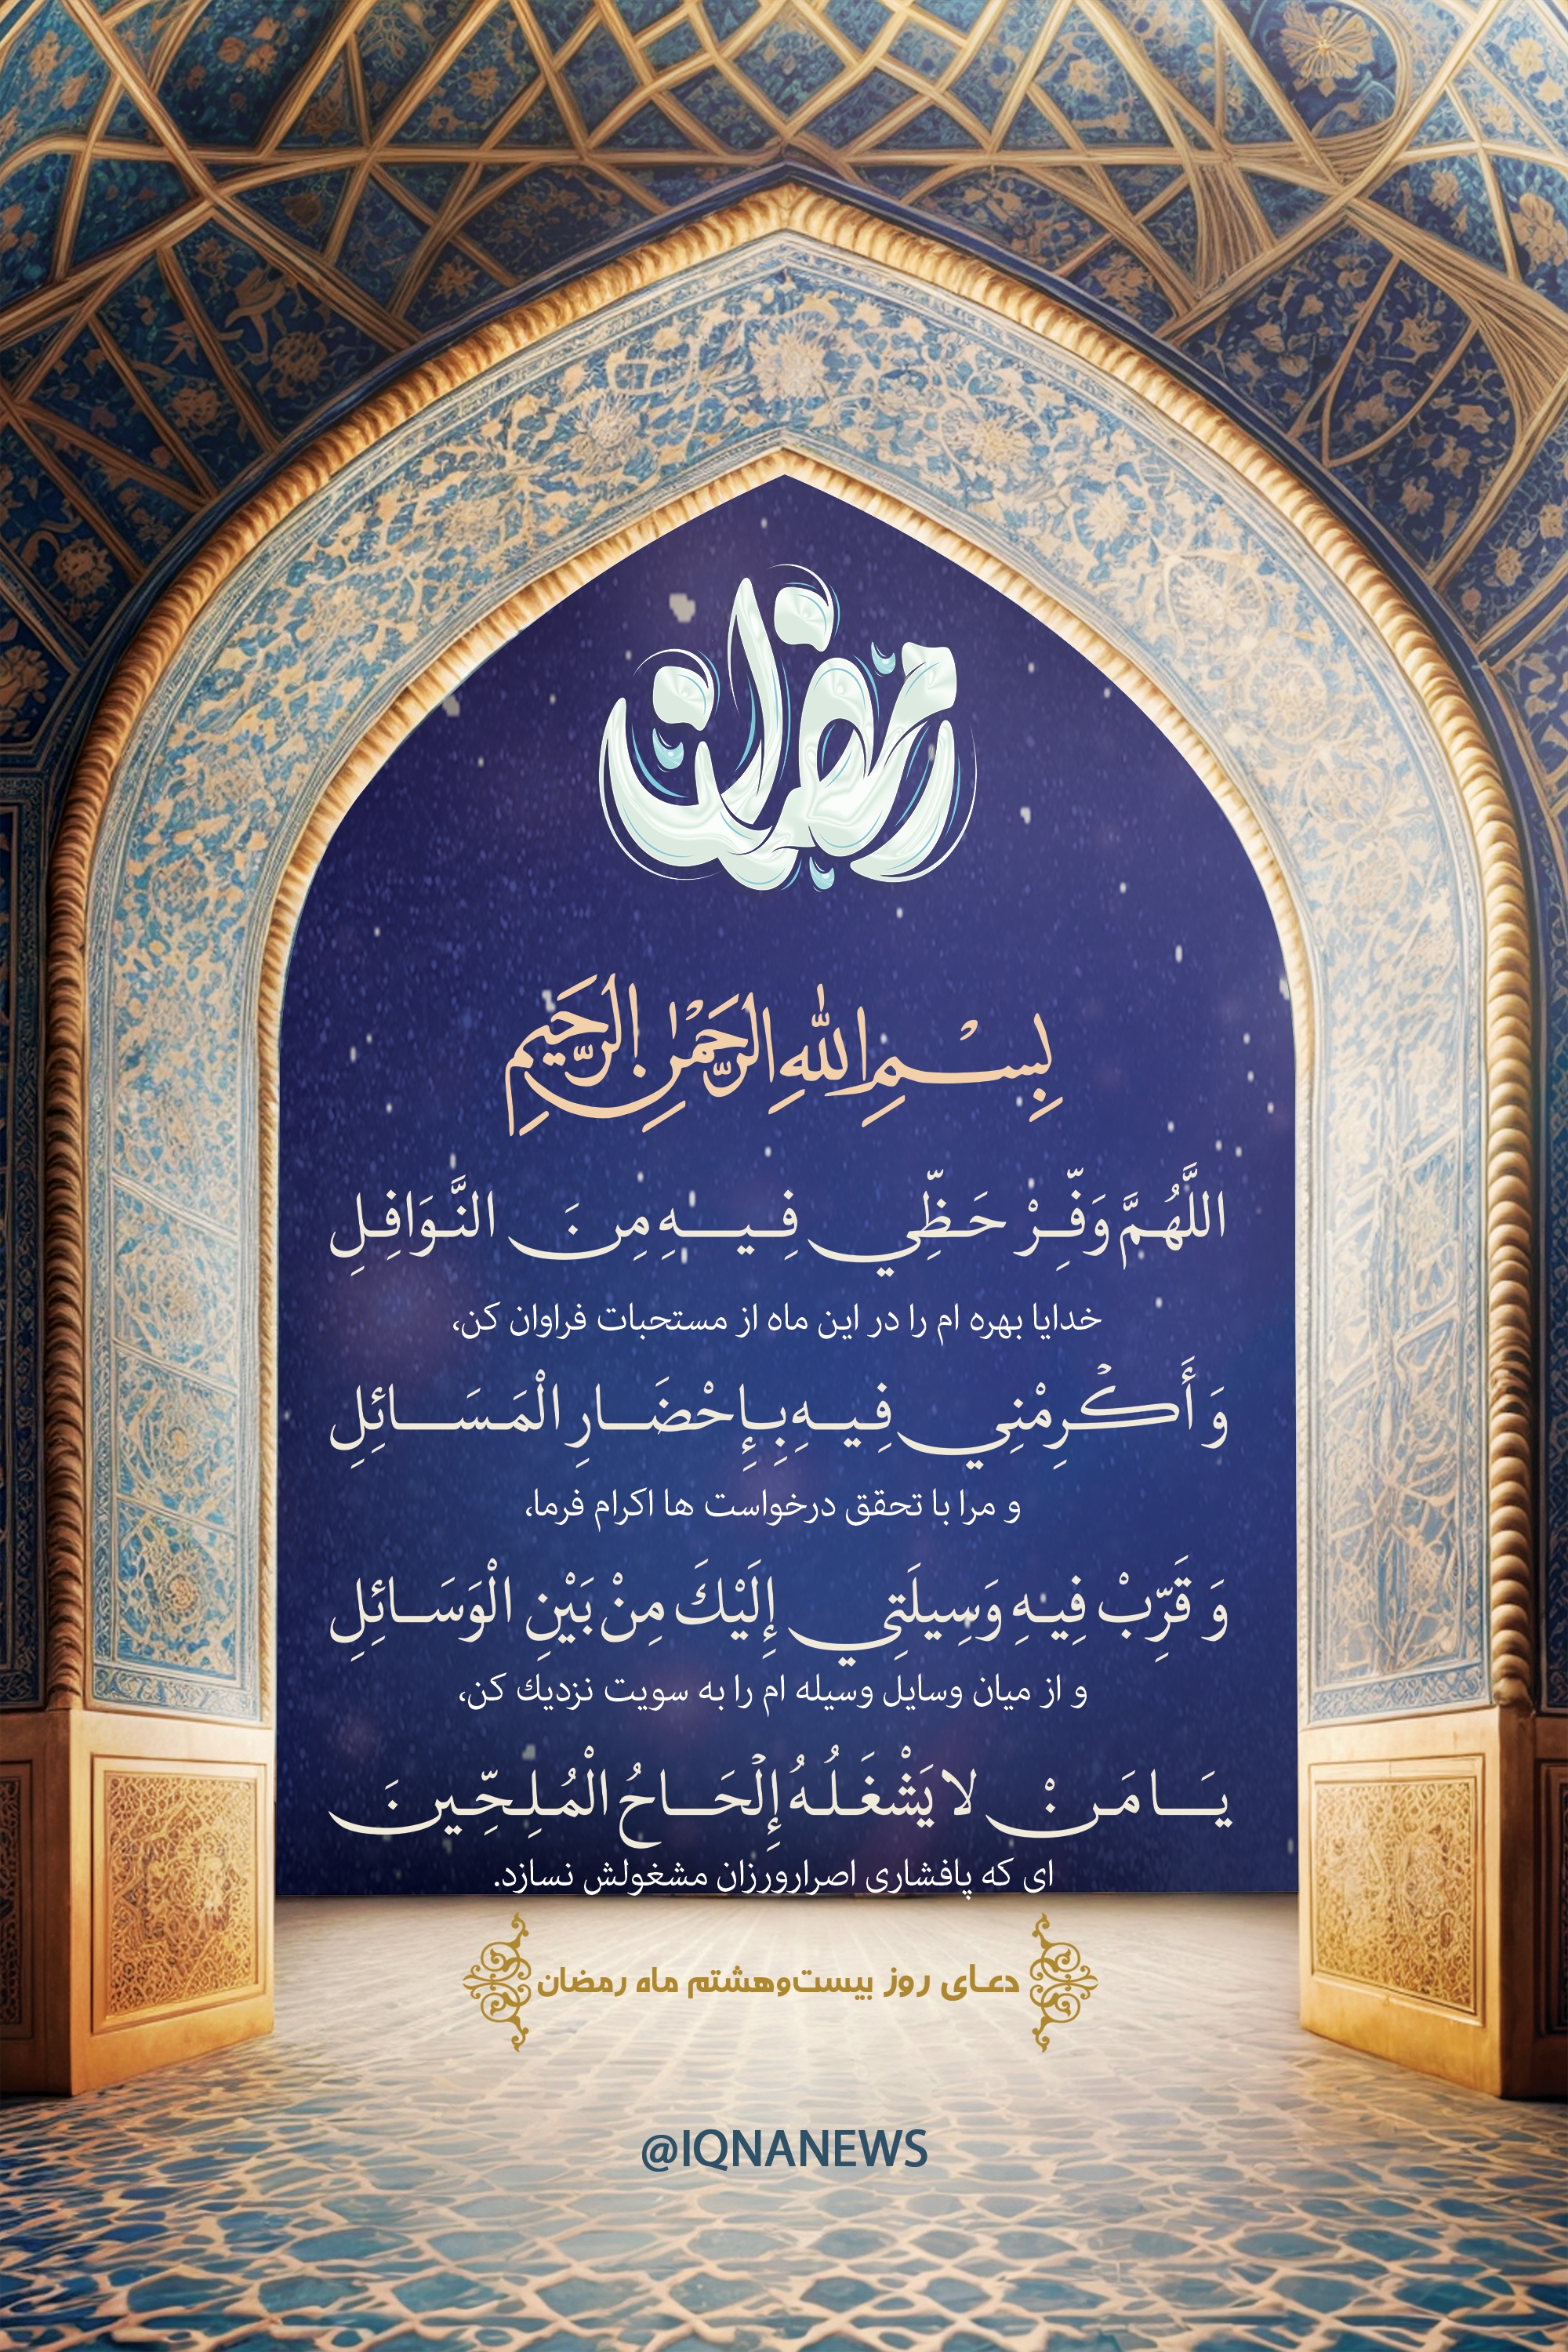 رمضان
بِسْمِ اللهِ الرَّحْمٰنِ الرَّحِیمِ
اللَّهُمَّ وَفِّرْ حَظِّي فِيهِ مِنَ النَّوَافِلِ
خدایا بهره ام را در این ماه از مستحبات فراوان کن،
وَ أَكْرِمْنِي فِيهِ بِإِحْضَارِ الْمَسَائِلِ
و مرا با تحقق درخواست ها اکرام فرما،
وَ قَرِّبْ فِيهِ وَسِيلَتِي إِلَيْكَ مِنْ بَيْنِ الْوَسَائِلِ
و از میان وسایل وسیله ام را به سویت نزدیك کن،
يَا مَنْ لا يَشْغَلُهُ إِلْحَاحُ الْمُلِحِّينَ
ای که پافشاری اصرارورزان مشغولش نسازد.
دعای روز بیست‌وهشتم ماه رمضان
@IQNANEWS